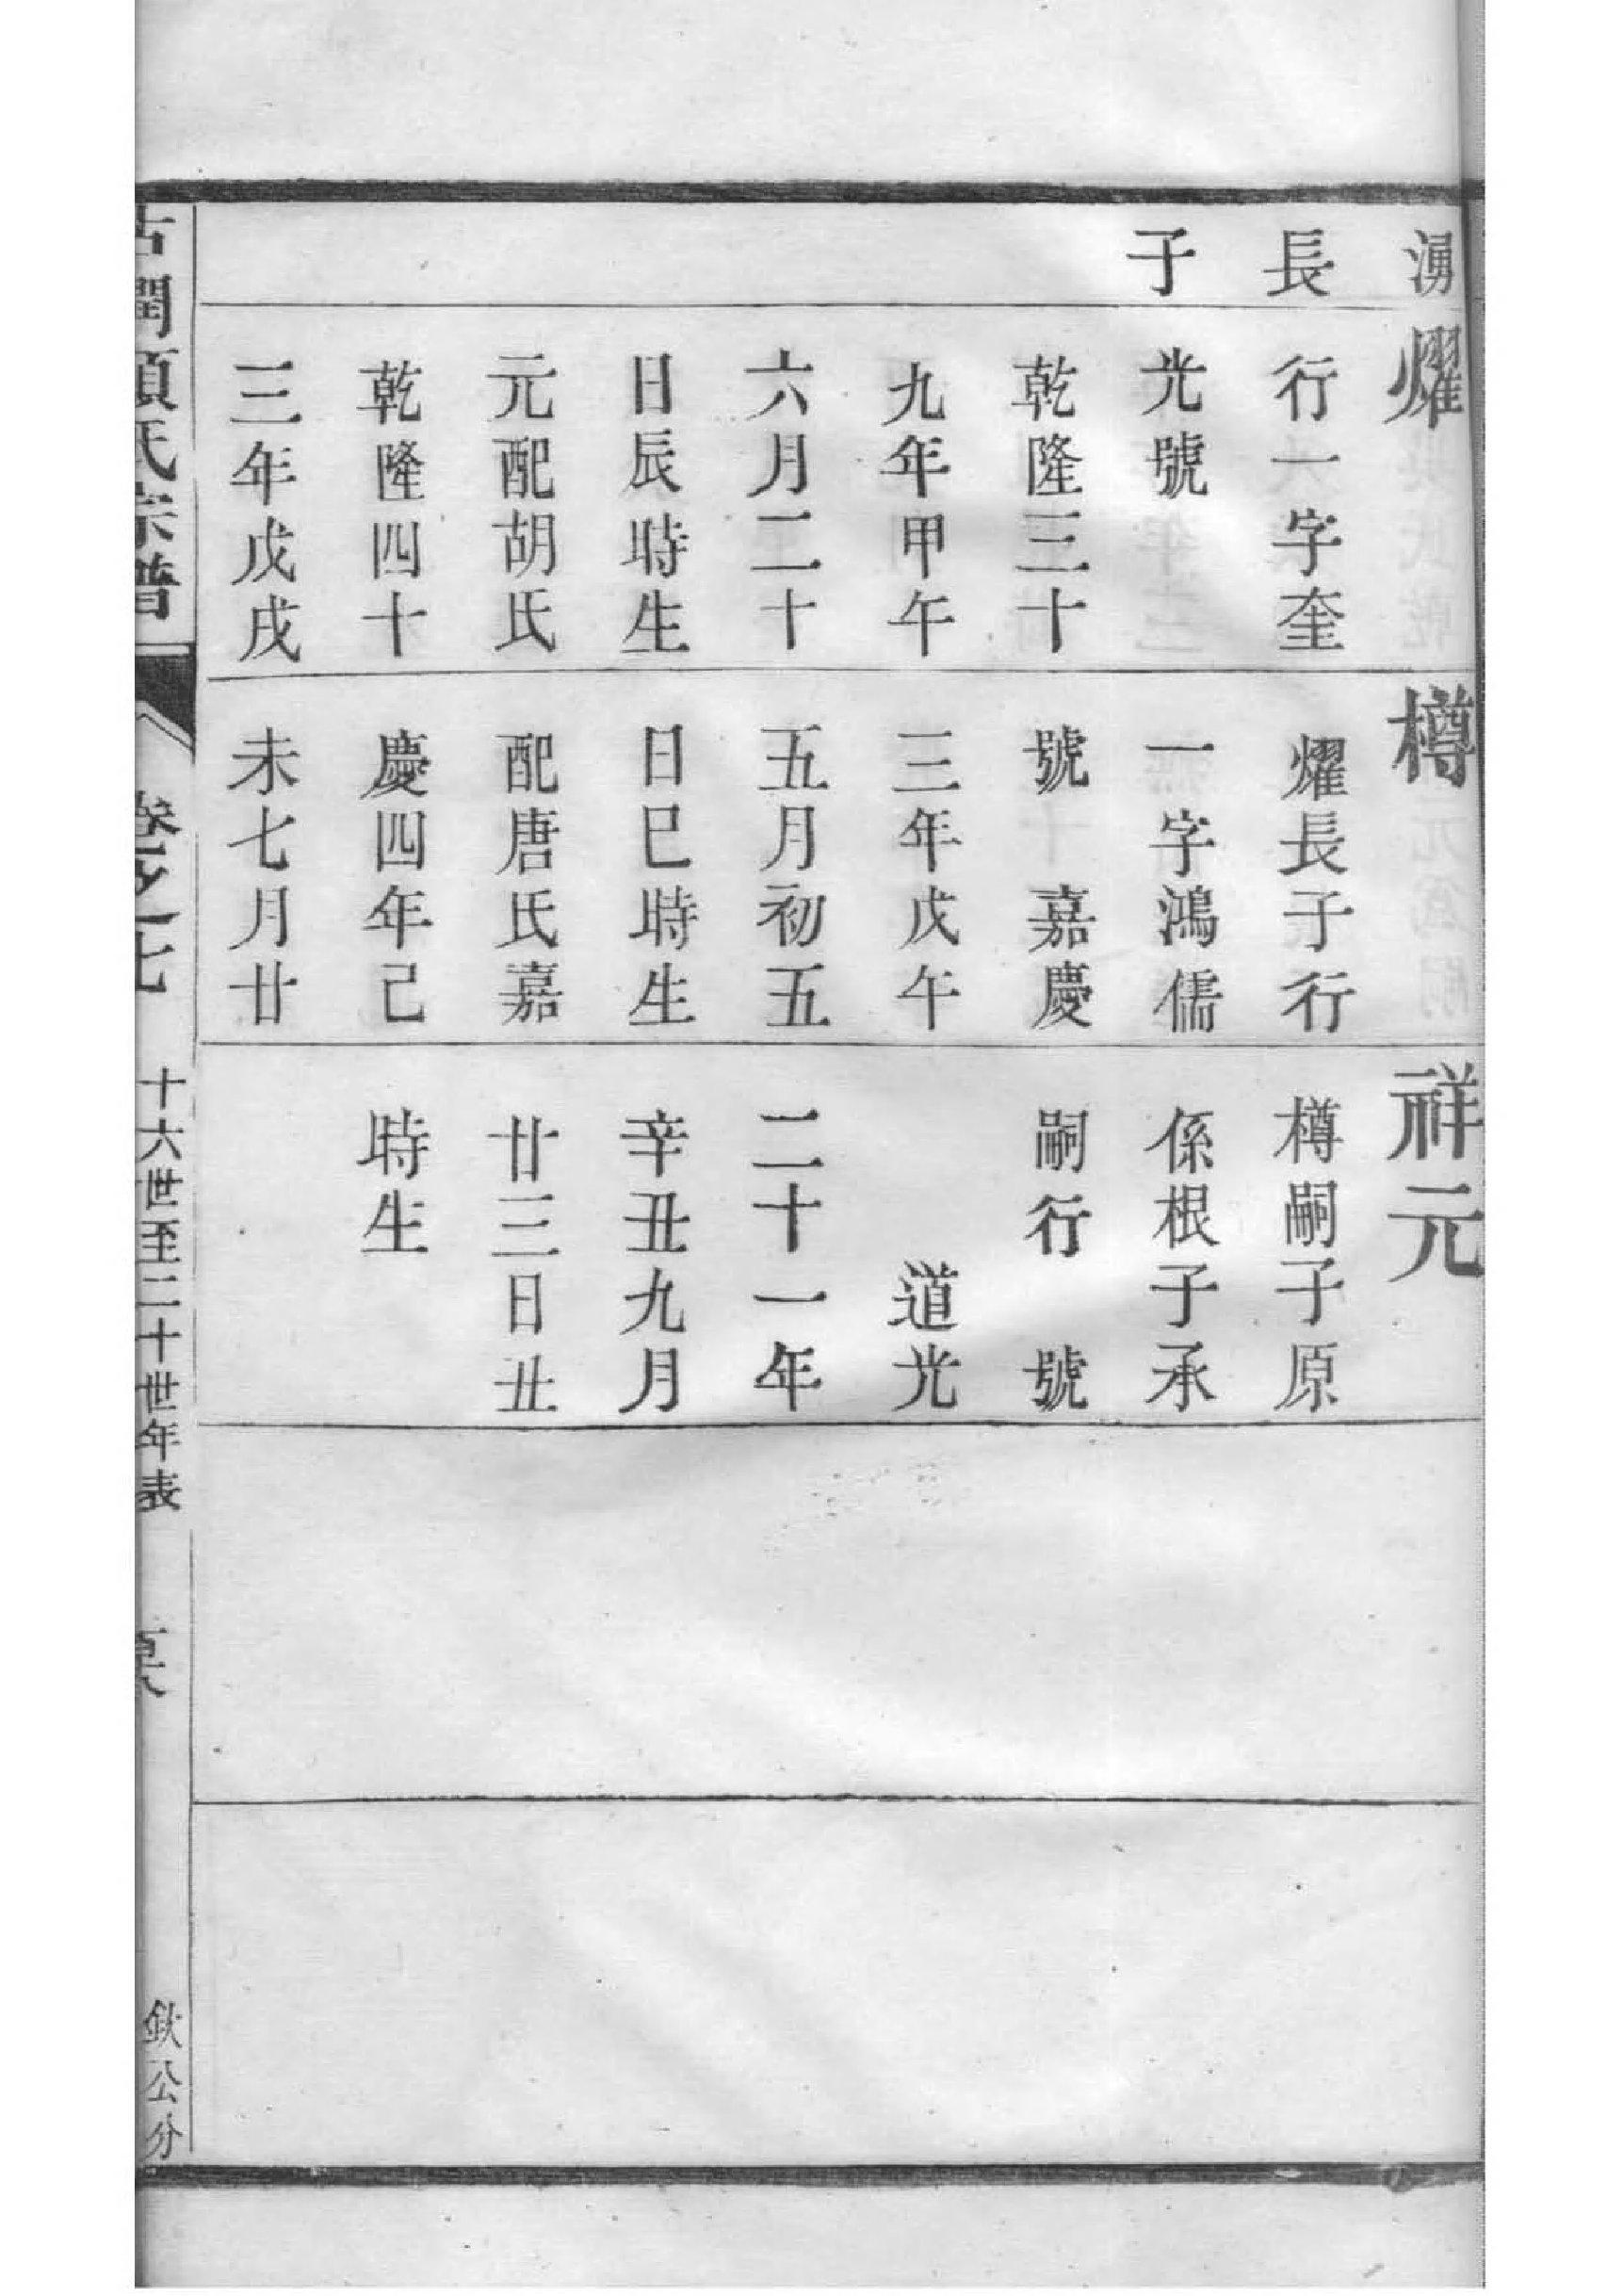 湧
長
子
燿
行一字奎
光號
乾隆三十
九年甲午
六月二十
日辰時生
元配胡氏
乾隆四十
三年戊戌
樽
燿長子行
一字鴻儒
號　嘉慶
三年戊午
五月初五
日巳時生
配唐氏嘉
慶四年己
未七月廿
祥元
樽嗣子原
係根子承
嗣行　號
道光
二十一年
辛丑九月
廿三日丑
時生
古潤項氏宗譜
卷之七
十六世至二十世年表
欽公分